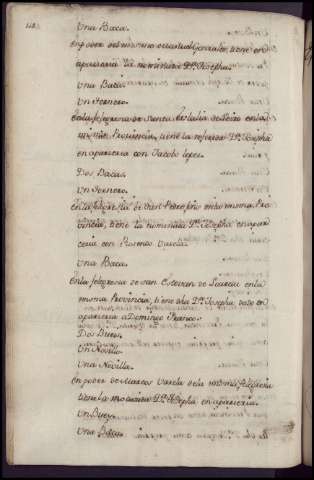 Una Baca.
en poder del mismo Gonzalez, tiene en
aparceria la nominada D.ª Josepha.
Una Baca.
Un Ternero.
En la felegresia de Santa Eulalia de en la
misma Provincia, tiene la referida D.ª Josepha
en aparceria con Jacobo Lopez.
Dos Bacas.
Un Ternero.
en la felegresia de San Pedro en la misma Pro
vincia, tiene la nominada D.ª Josepha en apar
ceria con Florencio Varela.
Una Baca.
En la felegresia de San Estevan de en la
misma Provincia, tiene la D.ª Josepha dado en
aparceria a Domingo Franco.
Dos Bueyes.
Un Novillo.
Una Novilla.
en poder de Marcos Varela de la misma felegresia
tiene la D.ª Josepha en aparceria.
Un Buey.
Una Baca.